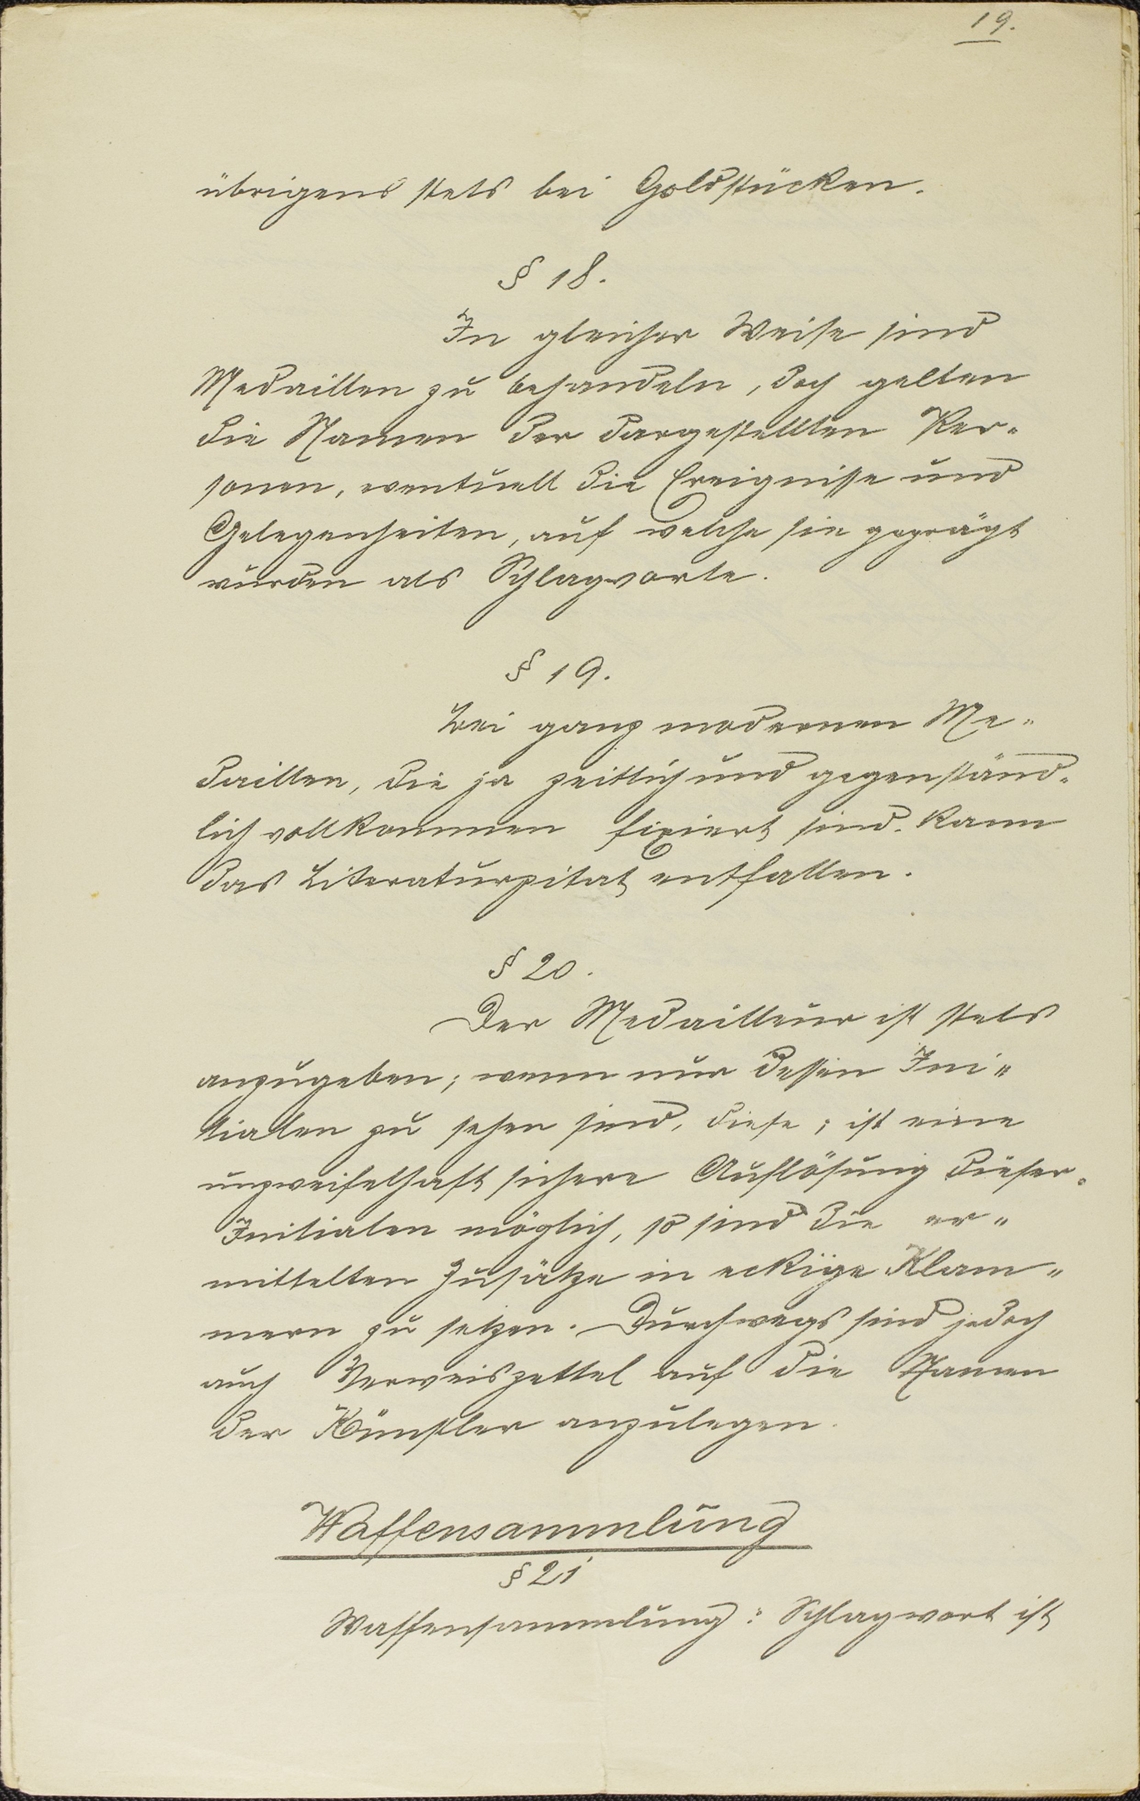 19.
übrigens stets bei Goldstücken.
§ 18.
In gleicher Weise sind
Medaillen zu behandeln, doch gelten
die Namen der dargestellten Per-
sonen, eventuell die Ereignisse und
Gelegenheiten, auf welche sie geprägt
wurden als Schlagworte.
§ 19.
Bei ganz modernen Me-
daillen, die ja zeitlich und gegenständ-
lich vollkommen fixiert sind. kann
das Literaturzitat entfallen.
§ 20.
Der Medailleur ist stets
anzugeben; wenn nur dessen Ini-
tialen zu sehen sind, diese; ist eine
unzweifelhaft sichere Auflösung dieser
Initialen möglich, so sind die er-
mittelten Zusätze in eckige Klam-
mern zu setzen. Durchwegs sind jedoch
auch Verweiszettel auf die Namen
der Künstler anzulegen.
Waffensammlung
§ 21
Waffensammlung: Schlagwort ist